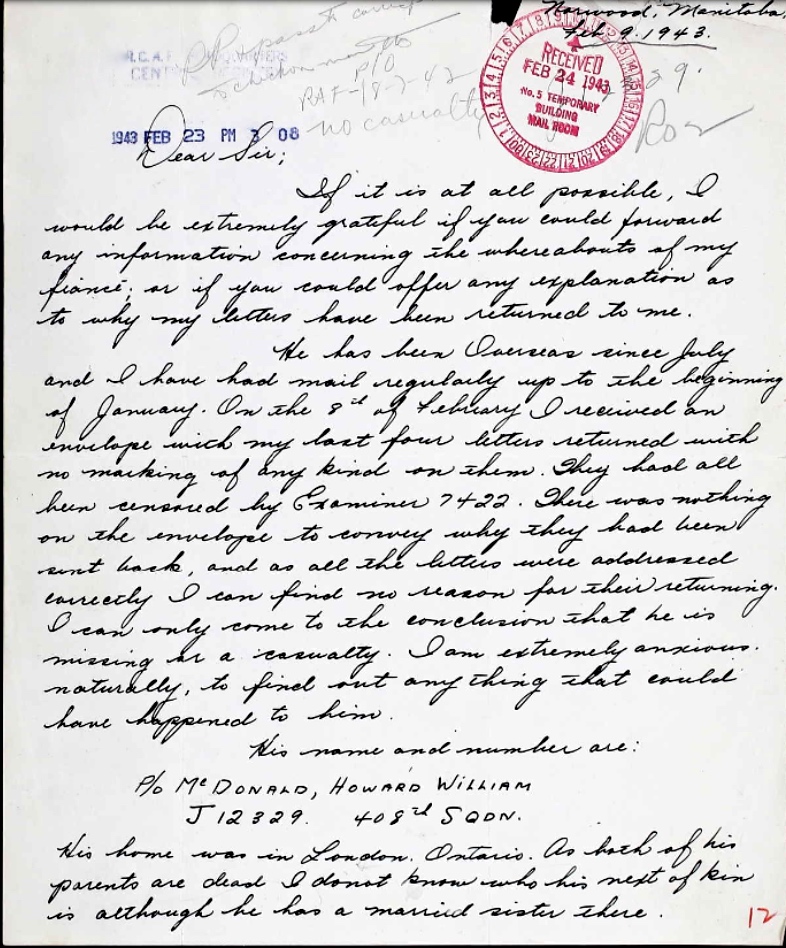 Norwood, Manitoba,
Feb 9. 1943.
R.C.A.F. HEADQUARTERS
CENTRAL
RAF-18-7-42
P/O
no casualty
RECEIVED
FEB 24 1943
No. 5 TEMPORARY
BUILDING
MAIL ROOM
1943 FEB 23 PM 3 08
Dear Sir;
If it is at all possible, I
would be extremely grateful if you could forward
any information concerning the whereabouts of my
fiancé; or if you could offer any explanation as
to why my letters have been returned to me.
He has been Overseas since July
and I have had mail regularly up to the beginning
of January. On the 8th of February I received an
envelope with my last four letters returned with
no marking of any kind on them. They had all
been censored by Examiner 7422. There was nothing
on the envelope to convey why they had been
sent back, and as all the letters were addressed
correctly I can find no reason for their returning.
I can only come to the conclusion that he is
missing or a casualty. I am extremely anxious.
naturally, to find out anything that could
have happened to him.
His name and number are:
P/O McDONALD, HOWARD WILLIAM
J 12329. 408th SQDN.
His home was in London. Ontario. As both of his
parents are dead I donot know who his next of kin
is although he has a married sister there.
12